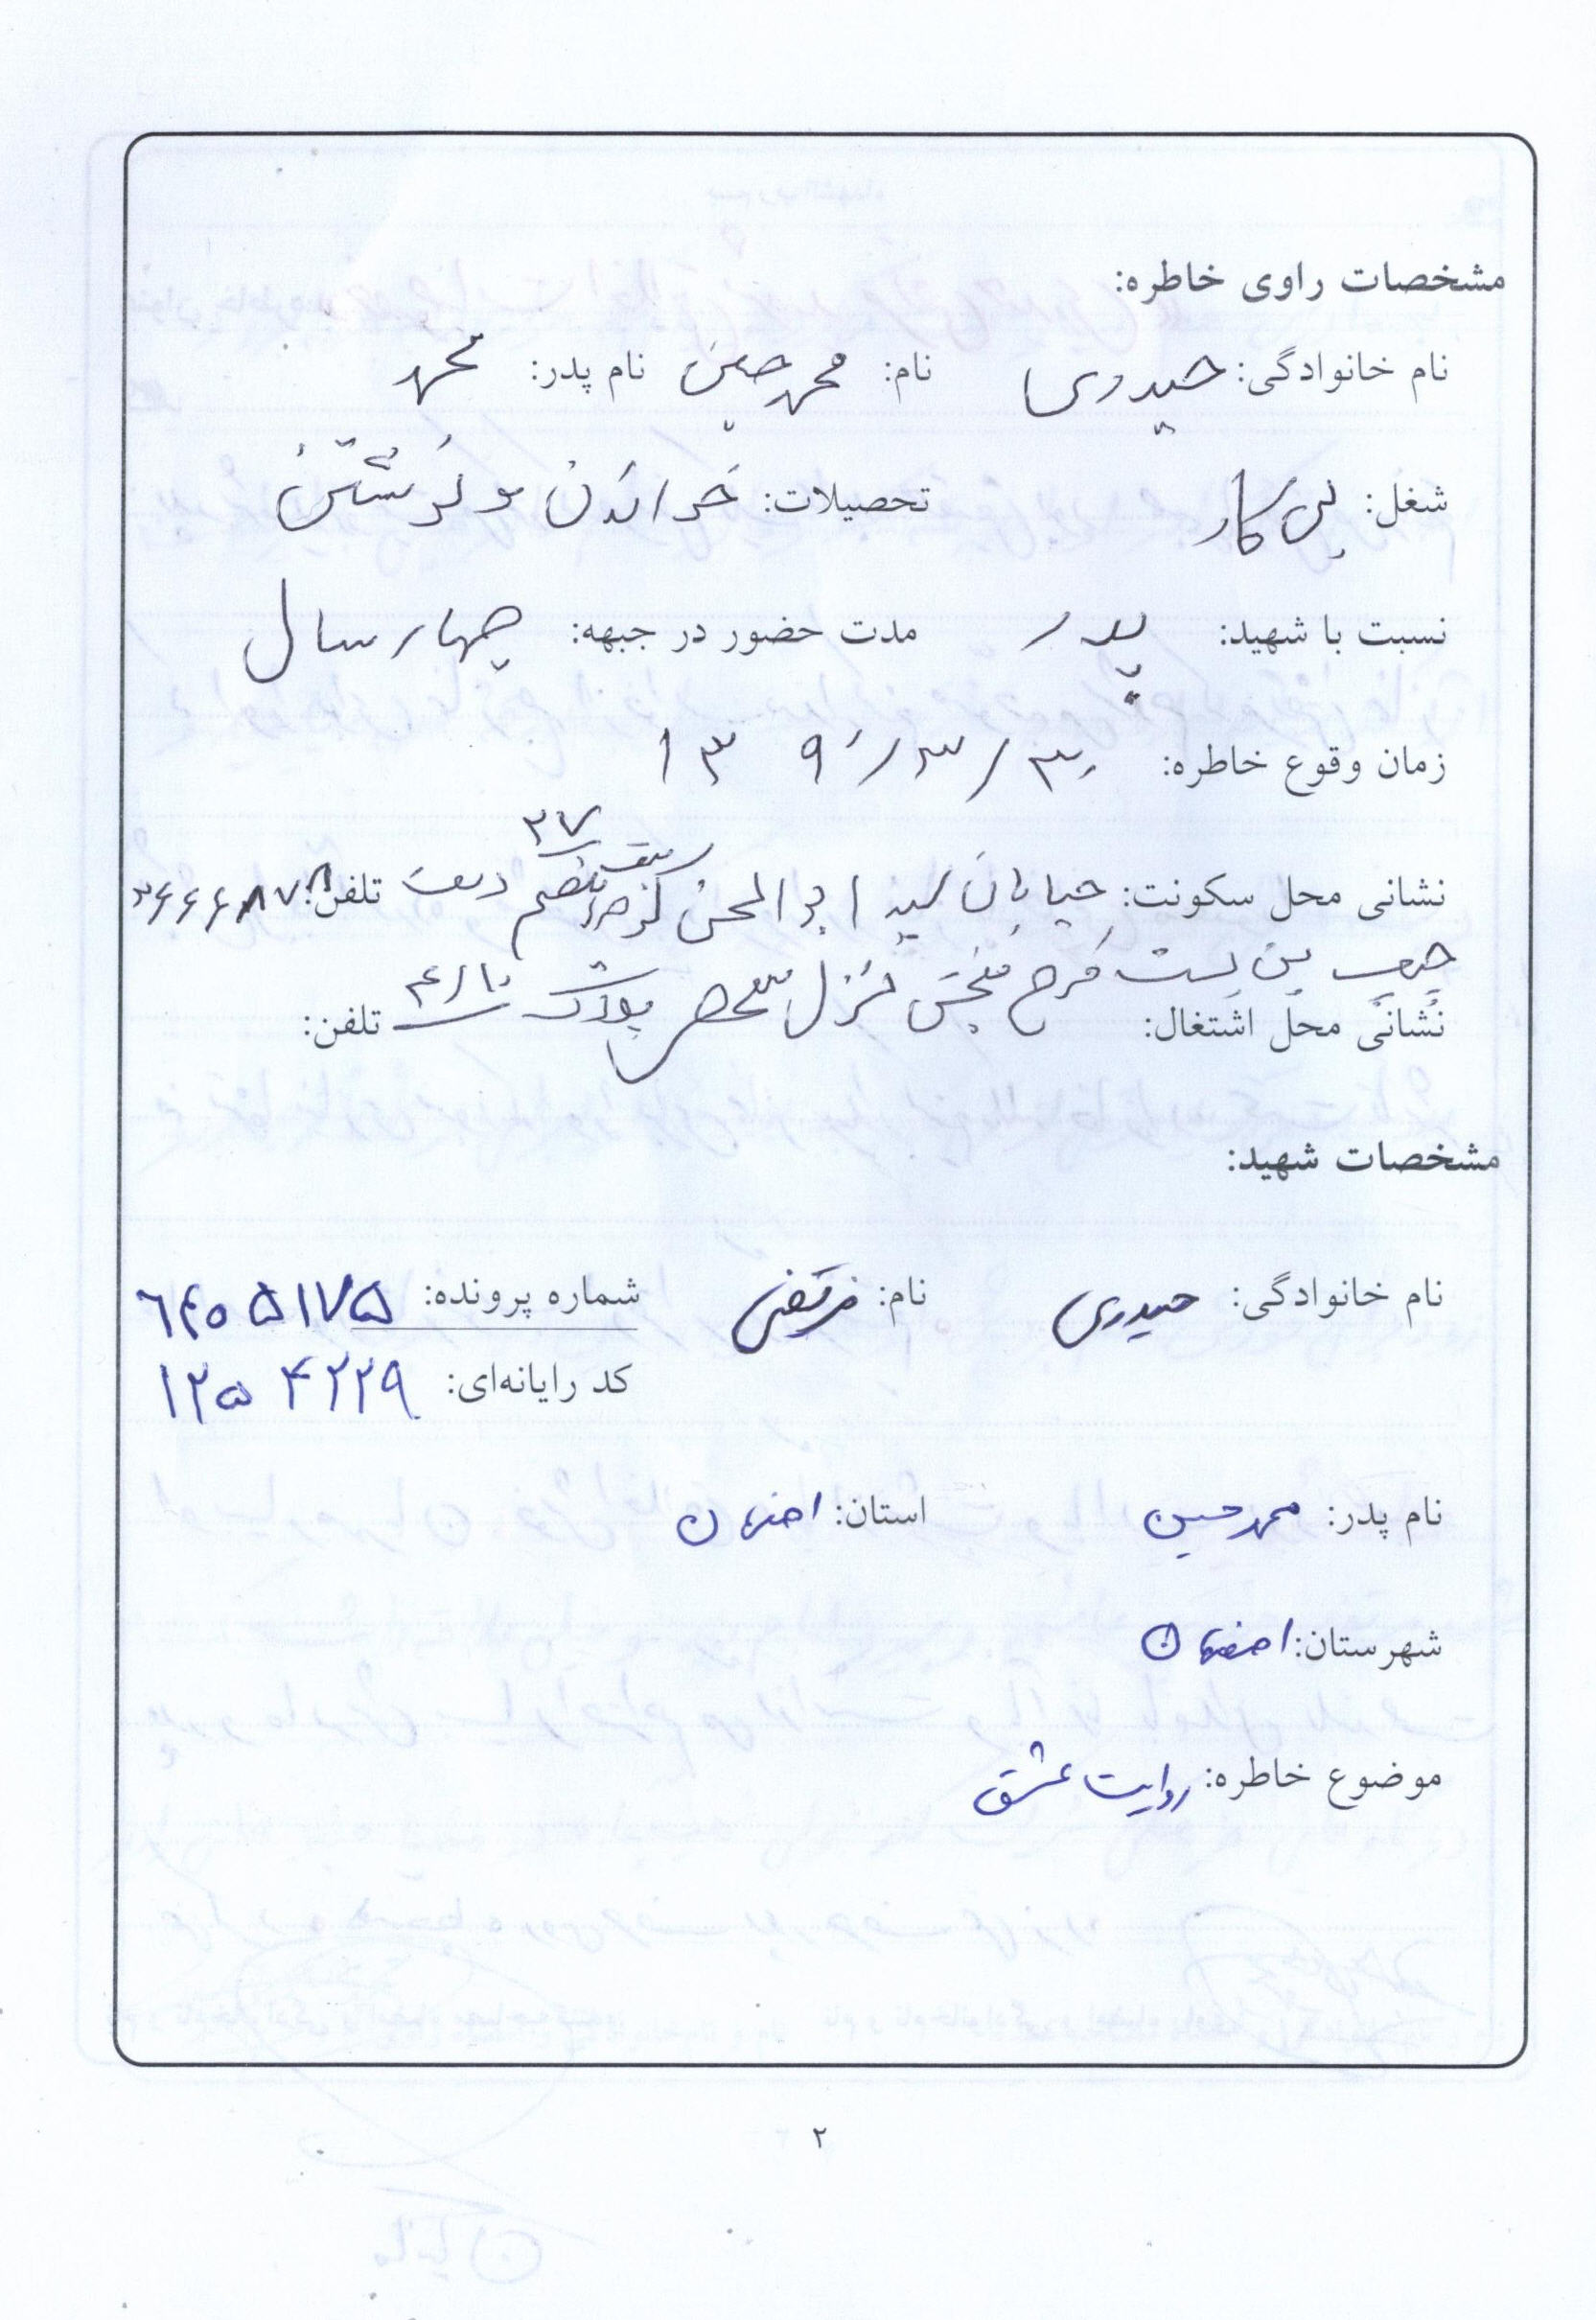 مشخصات راوی خاطره:
نام خانوادگی: حیدری نام: محمدحسین نام پدر: محمد
شغل: بی کار تحصیلات: خواندن و نوشتن
نسبت با شهید: پدر مدت حضور در جبهه: چهار سال
زمان وقوع خاطره: ۱۳۹۰/۳/۳۰
۳۷
نشانی محل سکونت: خیابان ابوالحسن دست تلفن:
چپ بن بست فرح بخش منزل شخصی پلاک ۴/۱۰
نشانی محل اشتغال: تلفن:
مشخصات شهید:
نام خانوادگی: حیدری نام: مرتضی شماره پرونده: ۶۴۰۵۱۷۵
کد رایانه‌ای: ۱۲۵۴۲۲۹
نام پدر: محمدحسین استان: اصفهان
شهرستان: اصفهان
موضوع خاطره: روایت عشق
۲